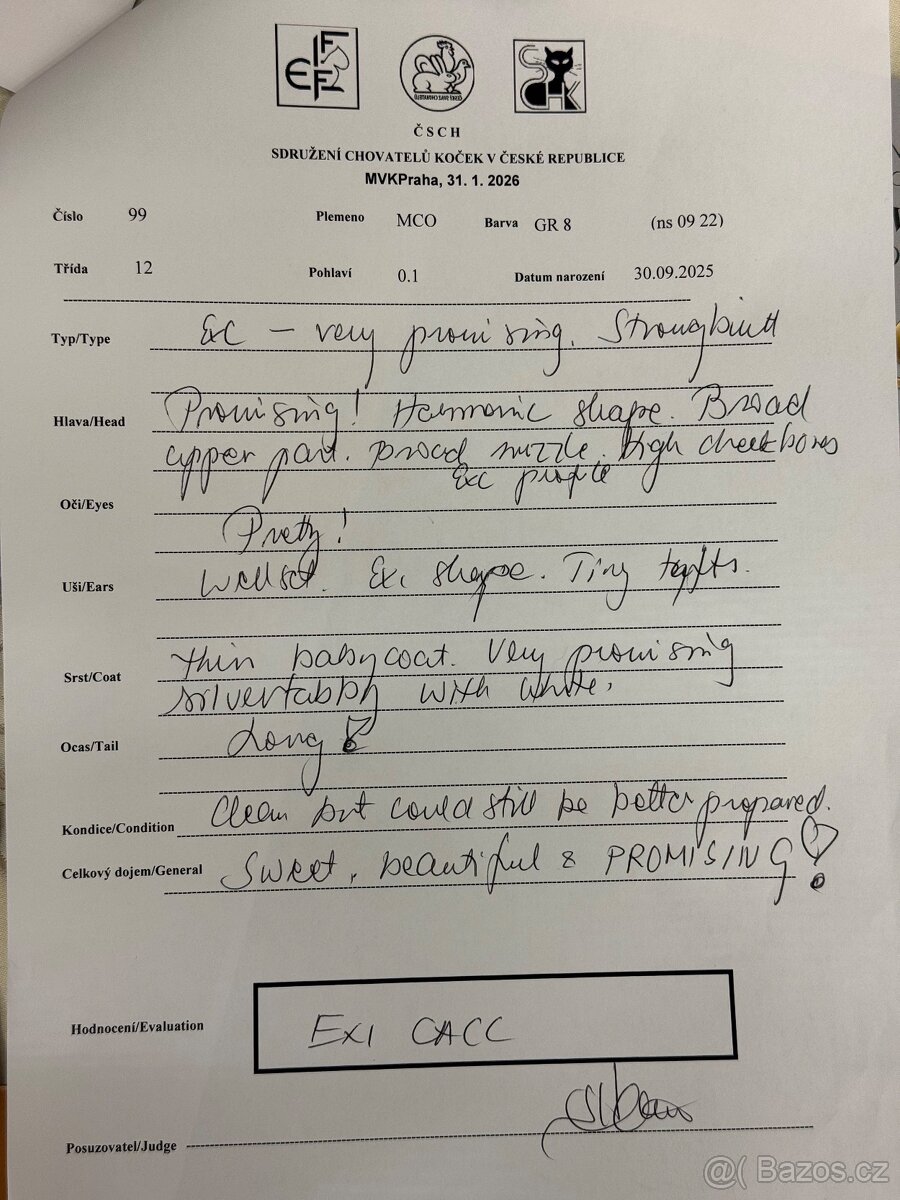 FIFe
ČSCHK
Č S C H
SDRUŽENÍ CHOVATELŮ KOČEK V ČESKÉ REPUBLICE
MVKPraha, 31. 1. 2026
Číslo 99 Plemeno MCO Barva GR 8 (ns 09 22)
Třída 12 Pohlaví 0.1 Datum narození 30.09.2025
Typ/Type Exc – very promising. Strongbuilt
Hlava/Head Promising! Harmonic shape. Broad
upper part. Broad muzzle. High cheekbones
Exc profile
Oči/Eyes
Pretty!
Uši/Ears Wellset. Exc shape. Tiny tufts.
Srst/Coat Thin babycoat. Very promising
silvertabby with white.
Ocas/Tail Long
Kondice/Condition Clean but could still be better prepared.
Celkový dojem/General Sweet, beautiful & PROMISING!
Hodnocení/Evaluation EX1 CACC
Posuzovatel/Judge
@( Bazos.cz